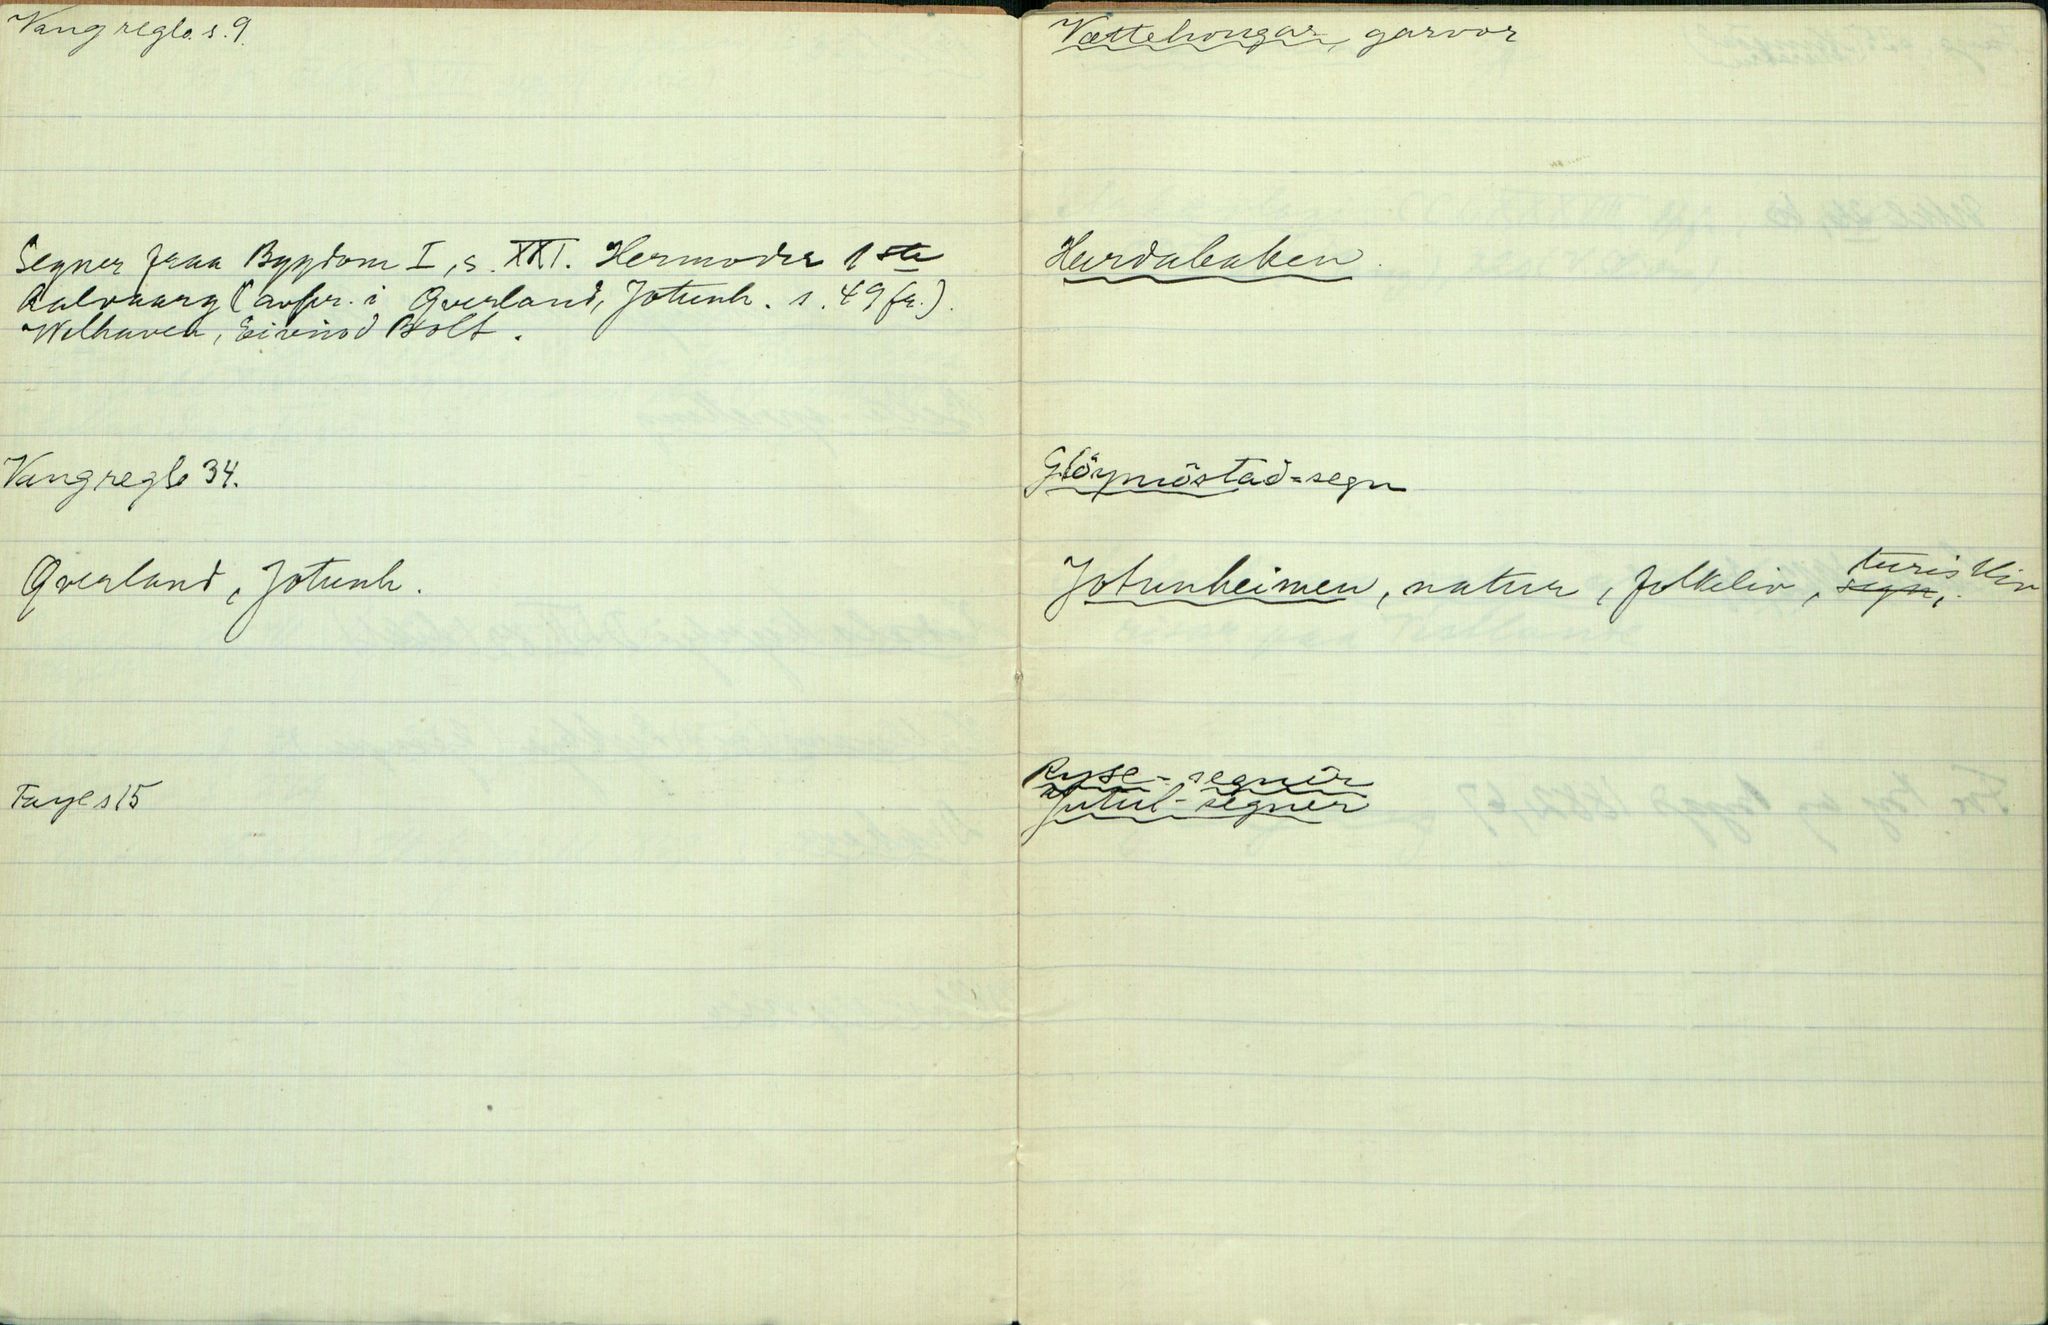 Vang regls. s. 9.
Segner fraa Bygdom I, s. XXI. Hermoder 1ste
Aalvaarg (avpr. i Qverland, Jotunh. s. 49 fr.).
Welhaven, Eivind Bolt.
Vang regls 34.
Qverland, Jotunh.
Faye s 15
Vættehougar, garvor
Hurdabaken.
Glöymöstad-segn
Jotunheimen, natur, folkeliv, segn, turistliv
Ryse-segner
Jutul-segner